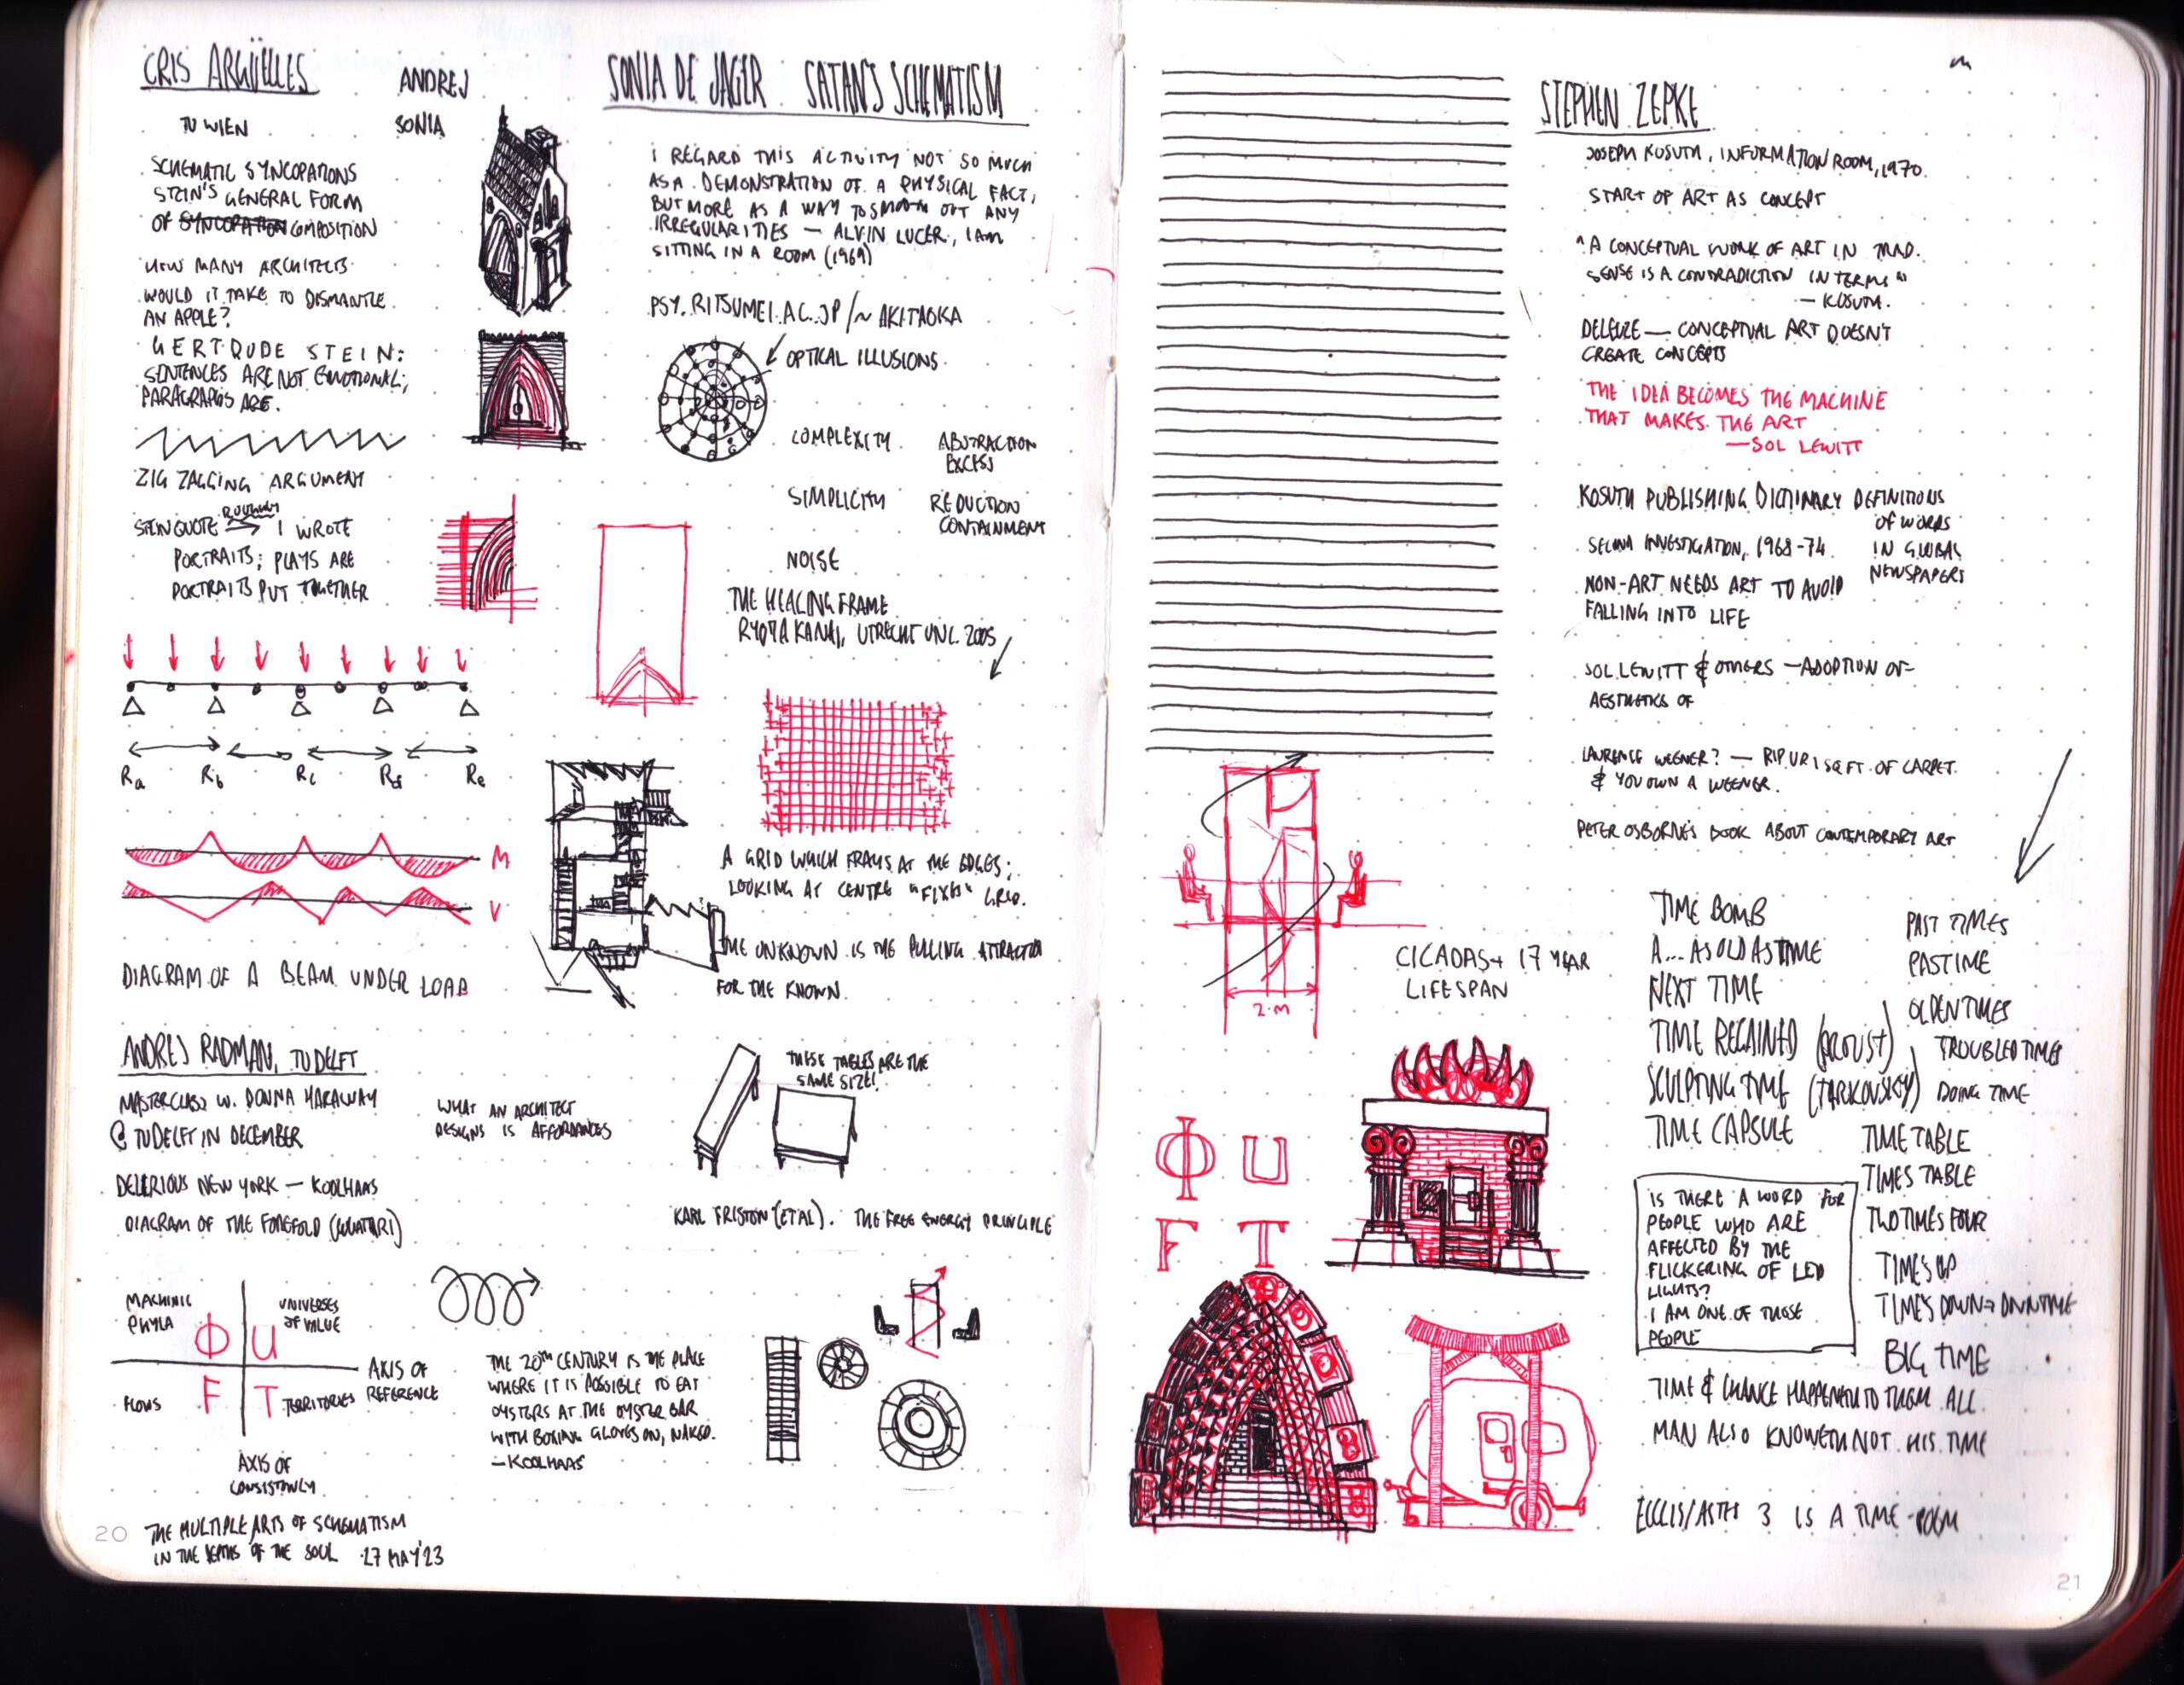 CRIS ARGÜELLES
ANDREJ
SONIA
TU WIEN
SCHEMATIC SYNCOPATIONS
STEIN'S GENERAL FORM
OF SYNCOPATION COMPOSITION
HOW MANY ARCHITECTS
WOULD IT TAKE TO DISMANTLE
AN APPLE?
GERTRUDE STEIN:
SENTENCES ARE NOT EMOTIONAL;
PARAGRAPHS ARE.
ZIG ZAGGING ARGUMENT
STEIN QUOTE ROUGHLY I WROTE
PORTRAITS; PLAYS ARE
PORTRAITS PUT TOGETHER
Ra Rb Rc Rd Re
M
V
DIAGRAM OF A BEAM UNDER LOAD
ANDREJ RADMAN, TU DELFT
MASTERCLASS W. DONNA HARAWAY
@ TU DELFT IN DECEMBER
WHAT AN ARCHITECT
DESIGNS IS AFFORDANCES
DELIRIOUS NEW YORK — KOOLHAAS
DIAGRAM OF THE FOREFOLD (GUATTARI)
MACHINIC
PHYLA
UNIVERSES
OF VALUE
Φ U
AXIS OF
REFERENCE
FLOWS
F T
TERRITORIES
AXIS OF
CONSISTENCY
THE 20TH CENTURY IS THE PLACE
WHERE IT IS POSSIBLE TO EAT
OYSTERS AT THE OYSTER BAR
WITH BOXING GLOVES ON, NAKED.
— KOOLHAAS
20
THE MULTIPLE ARTS OF SCHEMATISM
IN THE DEPTHS OF THE SOUL 27 MAY '23
SONIA DE JAGER SATAN'S SCHEMATISM
I REGARD THIS ACTIVITY NOT SO MUCH
AS A DEMONSTRATION OF A PHYSICAL FACT,
BUT MORE AS A WAY TO SMOOTH OUT ANY
IRREGULARITIES — ALVIN LUCER, I AM
SITTING IN A ROOM (1969)
PSY.RITSUMEI.AC.JP/~AKITAOKA
OPTICAL ILLUSIONS
COMPLEXITY ABSTRACTION
EXCESS
SIMPLICITY REDUCTION
CONTAINMENT
NOISE
THE HEALING FRAME
RYOTA KANAI, UTRECHT UNI. 2005
A GRID WHICH FRAYS AT THE EDGES;
LOOKING AT CENTRE "FIXES" GRID.
THE UNKNOWN IS THE PULLING ATTRACTOR
FOR THE KNOWN
THESE TABLES ARE THE
SAME SIZE!
KARL FRISTON (ET AL). THE FREE ENERGY PRINCIPLE
2 M
CICADAS → 17 YEAR
LIFESPAN
Φ U
F T
STEPHEN ZEPKE
JOSEPH KOSUTH, INFORMATION ROOM, 1970
START OF ART AS CONCEPT
"A CONCEPTUAL WORK OF ART IN TRAD.
SENSE IS A CONTRADICTION IN TERMS"
— KOSUTH.
DELEUZE — CONCEPTUAL ART DOESN'T
CREATE CONCEPTS
THE IDEA BECOMES THE MACHINE
THAT MAKES THE ART
— SOL LEWITT
KOSUTH PUBLISHING DICTINARY DEFINITIONS
OF WORDS
IN GLOBAL
NEWSPAPERS
SECOND INVESTIGATION, 1968-74
NON-ART NEEDS ART TO AVOID
FALLING INTO LIFE
SOL LEWITT & OTHERS — ADOPTION OF
AESTHETICS OF
LAURENCE WEENER? — RIP UR 1 SQ FT. OF CARPET
& YOU OWN A WEENER.
PETER OSBORNE'S BOOK ABOUT CONTEMPORARY ART
TIME BOMB
A... AS OLD AS TIME
NEXT TIME
TIME REGAINED (PROUST)
SCULPTING TIME (TARKOVSKY)
TIME CAPSULE
PAST TIMES
PASTIME
OLDEN TIMES
TROUBLED TIMES
DOING TIME
TIME TABLE
TIMES TABLE
TWO TIMES FOUR
TIME'S UP
TIME'S DOWN → DOWNTIME
BIG TIME
IS THERE A WORD FOR
PEOPLE WHO ARE
AFFECTED BY THE
FLICKERING OF LED
LIGHTS?
I AM ONE OF THOSE
PEOPLE
TIME & CHANCE HAPPENETH TO THEM ALL
MAN ALSO KNOWETH NOT HIS TIME
3 IS A TIME POEM
21